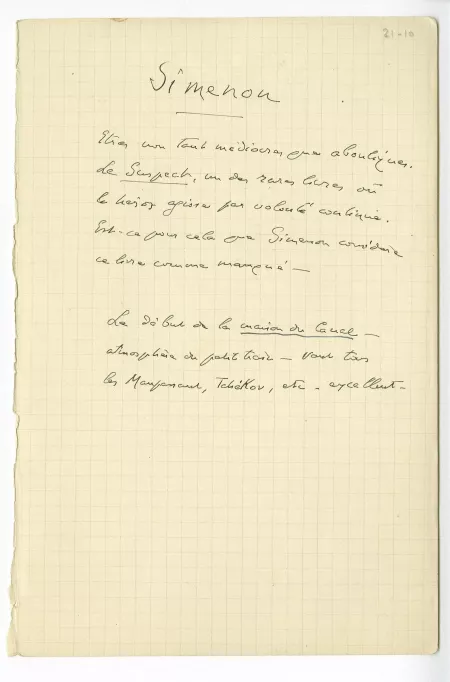 21-10
Simenon
Etres non tant médiocres que abouliques.
Le Suspect, un des rares livres où
le héros agisse par volonté continue.
Est-ce pour cela que Simenon considère
ce livre comme manqué —
Le début de la maison du Canal —
atmosphère du petit train — vaut tous
les Maupassant, Tchékov, etc - excellent -